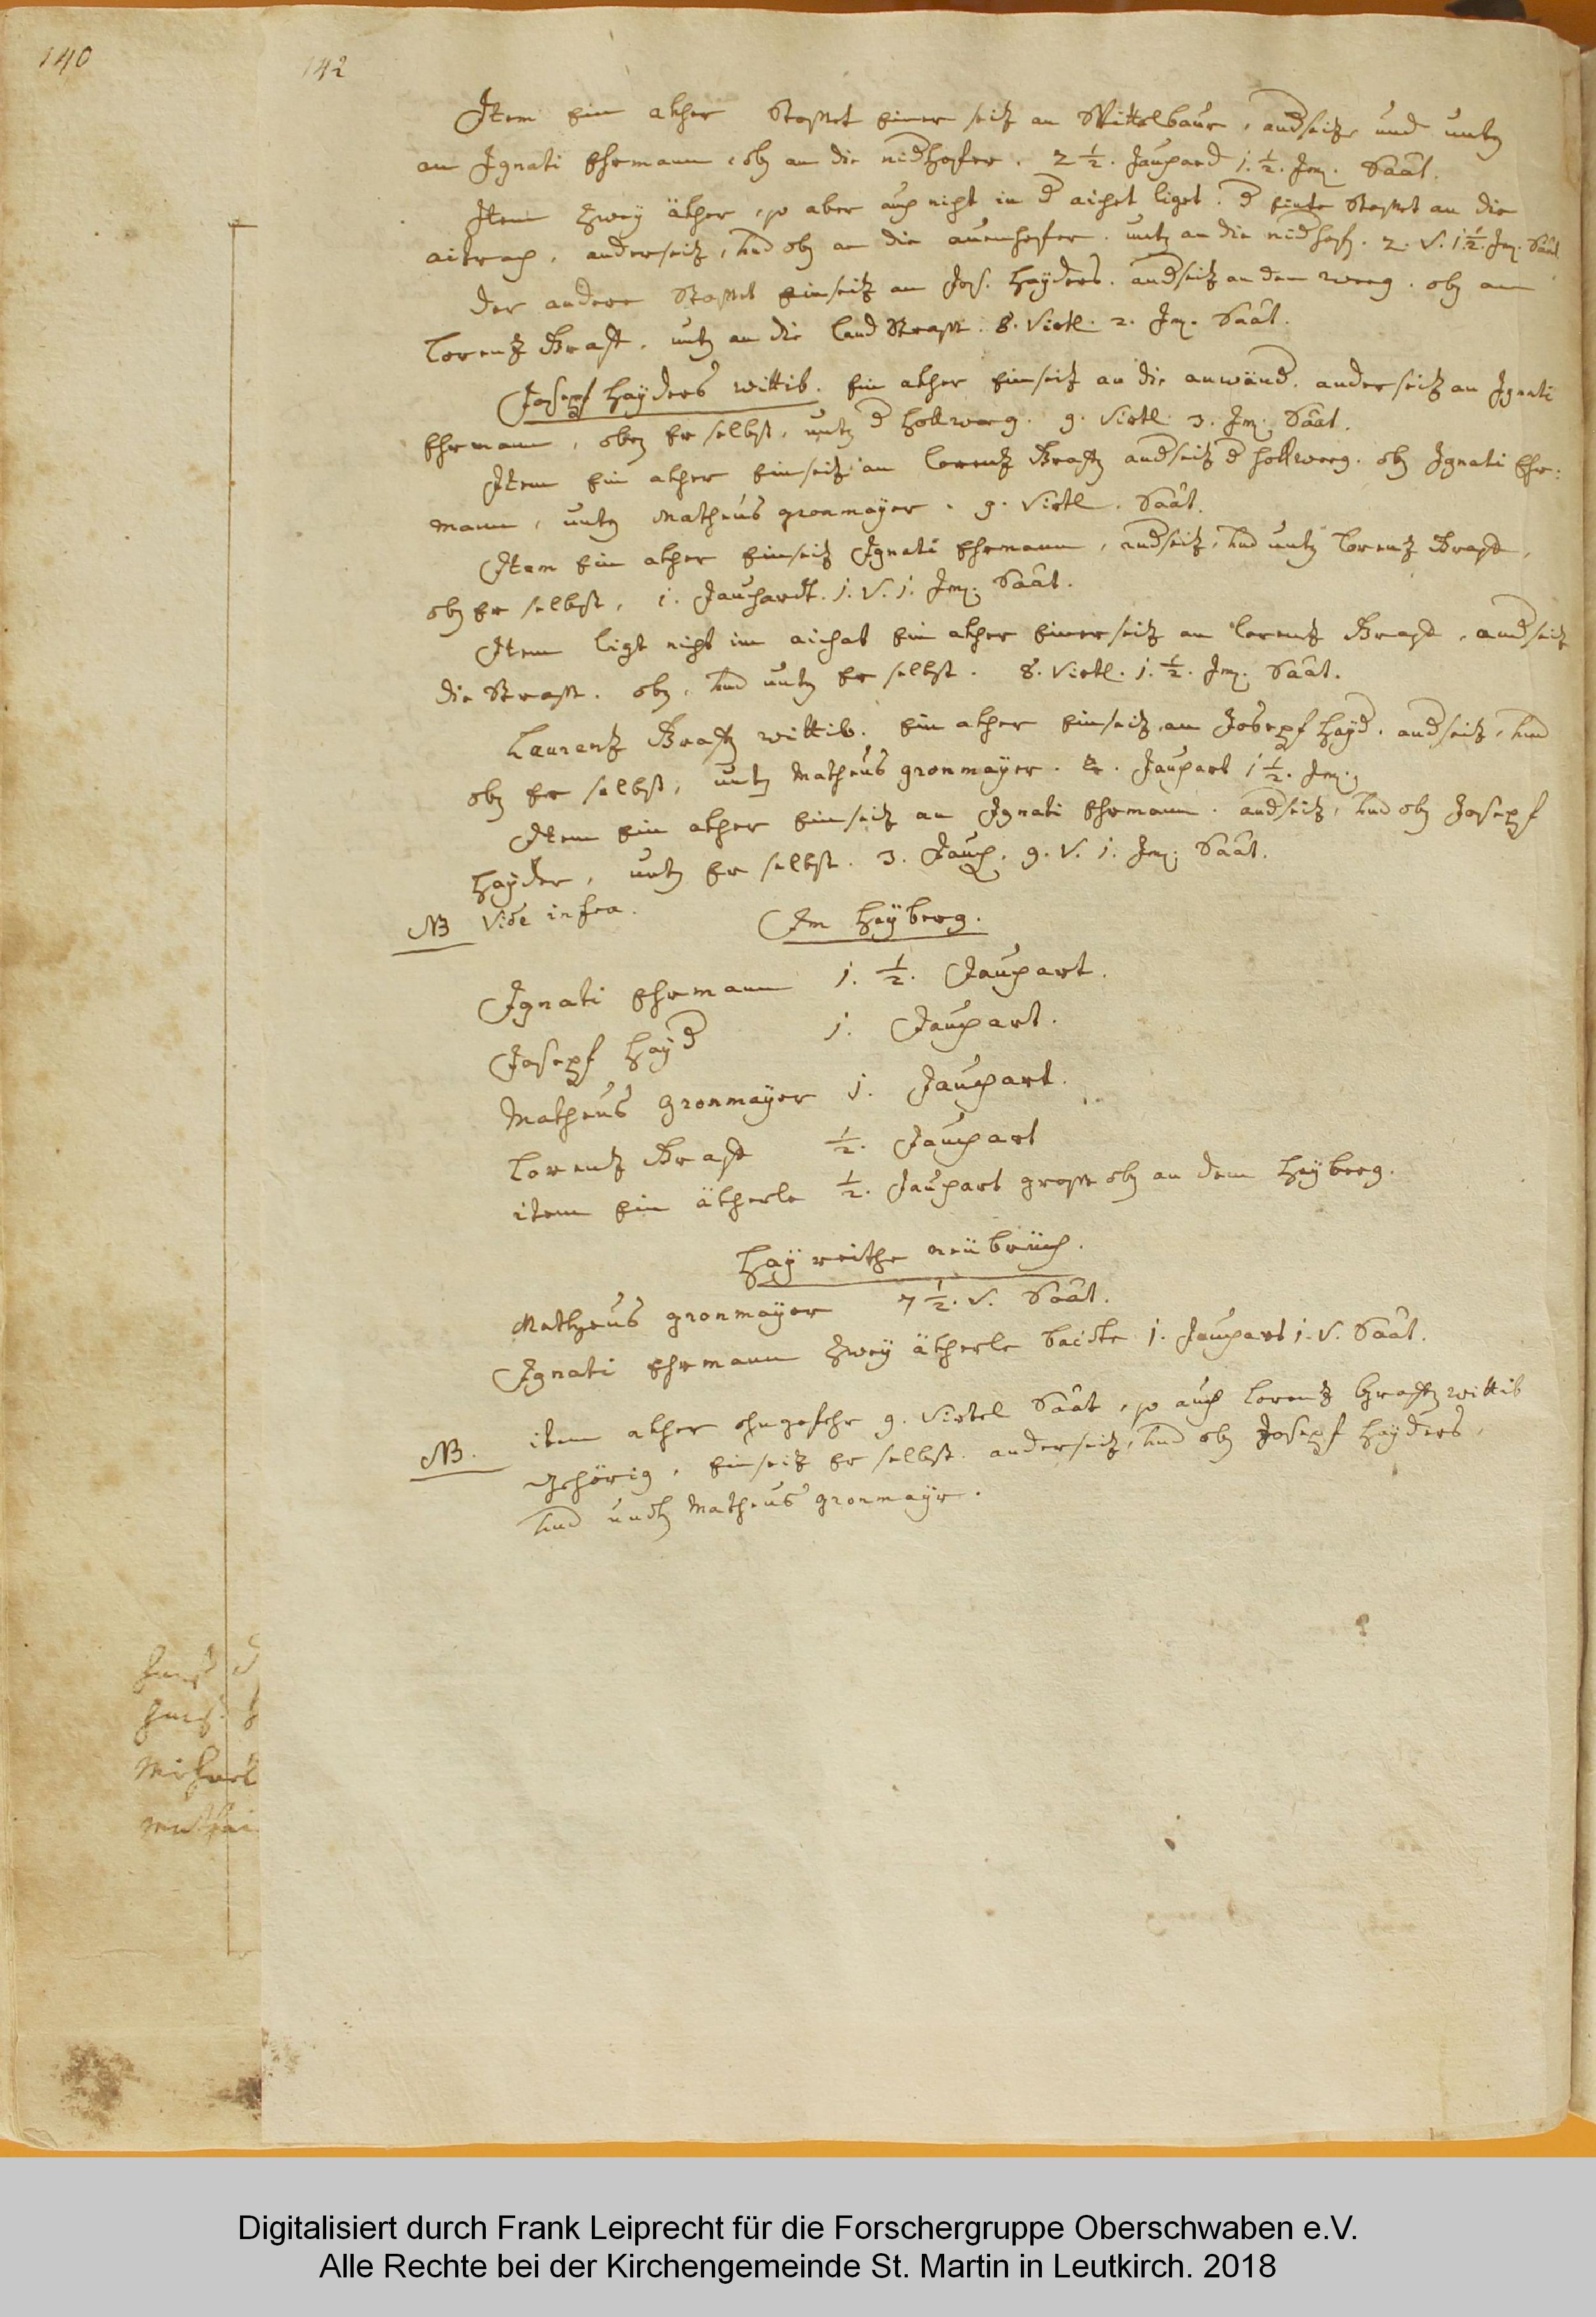 140
142
Item ein akher stosset einer seitz an Mittelbaur, anderseitz und unten
an Ignati Ehrmann, oben an die niderhofer. 2 1/2. Jauchard 1. 1/2. Jmj. Saat.
Item zwey äkher, so aber auch nicht in der aichet liget. der einte stosset an die
aitrach, anderseitz, und oben an die auenhofer. unten an die niderhofer. 2. V. 1. 1/2. Jmj. Saat
der andere stosset einseitz an Jos. Hayders. anderseitz an den weeg. oben an
Lorentz Krafft, unten an die Landstrass. 8. Viertl. 2. Jmj. Saat.
Joseph Hayders wittib. Ein akher einseitz an die anwänd. anderseitz an Ignati
Ehrmann, oben Er selbst, unten der hollweeg. 9. Viertl. 3. Jmj. Saat.
Item ein akher einseitz an Lorentz Kraften anderseitz der hollweeg. oben Ignati Ehr:
mann, unten Matheus gronmayer. 9. Viertl. Saat.
Item ein akher einseitz Ignati Ehrmann, anderseitz, und unten Lorentz Kraft,
oben Er selbst, 1. Jauchardt. 1. V. 1. Jmj. Saat.
Item ligt nicht im aichat ein akher einerseitz an Lorentz Kraft, anderseitz
die Strass. oben, und unten Er selbst. 8. Viertl. 1. 1/2. Jmj. Saat.
Laurentz Kraften wittib. Ein akher einseitz an Joseph Hayder. anderseitz, und
oben Er selbst, unten Matheus gronmayer. Jauchart 1 1/2. Jmj.
Item ein akher einseitz an Ignati Ehrmann. anderseitz, und oben Joseph
Hayder, unten Er selbst. 3. Jauch. 9. V. 1. Jmj. Saat.
NB Vide infra.
Im Heyberg.
Ignati Ehrmann 1. 1/2. Jauchart.
Joseph Hayder 1. Jauchart.
Matheus Gronmayer 1. Jauchart.
Lorentz Kraft 1/2. Jauchart
item ein äkherle 1/2. Jauchart gross oben an dem Heyberg.
Hayreithe neübrüch.
Matheus gronmayer 7 1/2. V. Saat.
Ignati Ehrmann zwey äkherle beidte 1. Jauchart 1. V. Saat.
NB. item akher ohngefehr 9. Viertel Saat, so auch Lorentz Kraften wittib
gehörig, einseitz Er selbst. anderseitz, und oben Joseph Hayders,
und undten Matheus gronmayr.
Michael
Digitalisiert durch Frank Leiprecht für die Forschergruppe Oberschwaben e.V.
Alle Rechte bei der Kirchengemeinde St. Martin in Leutkirch. 2018